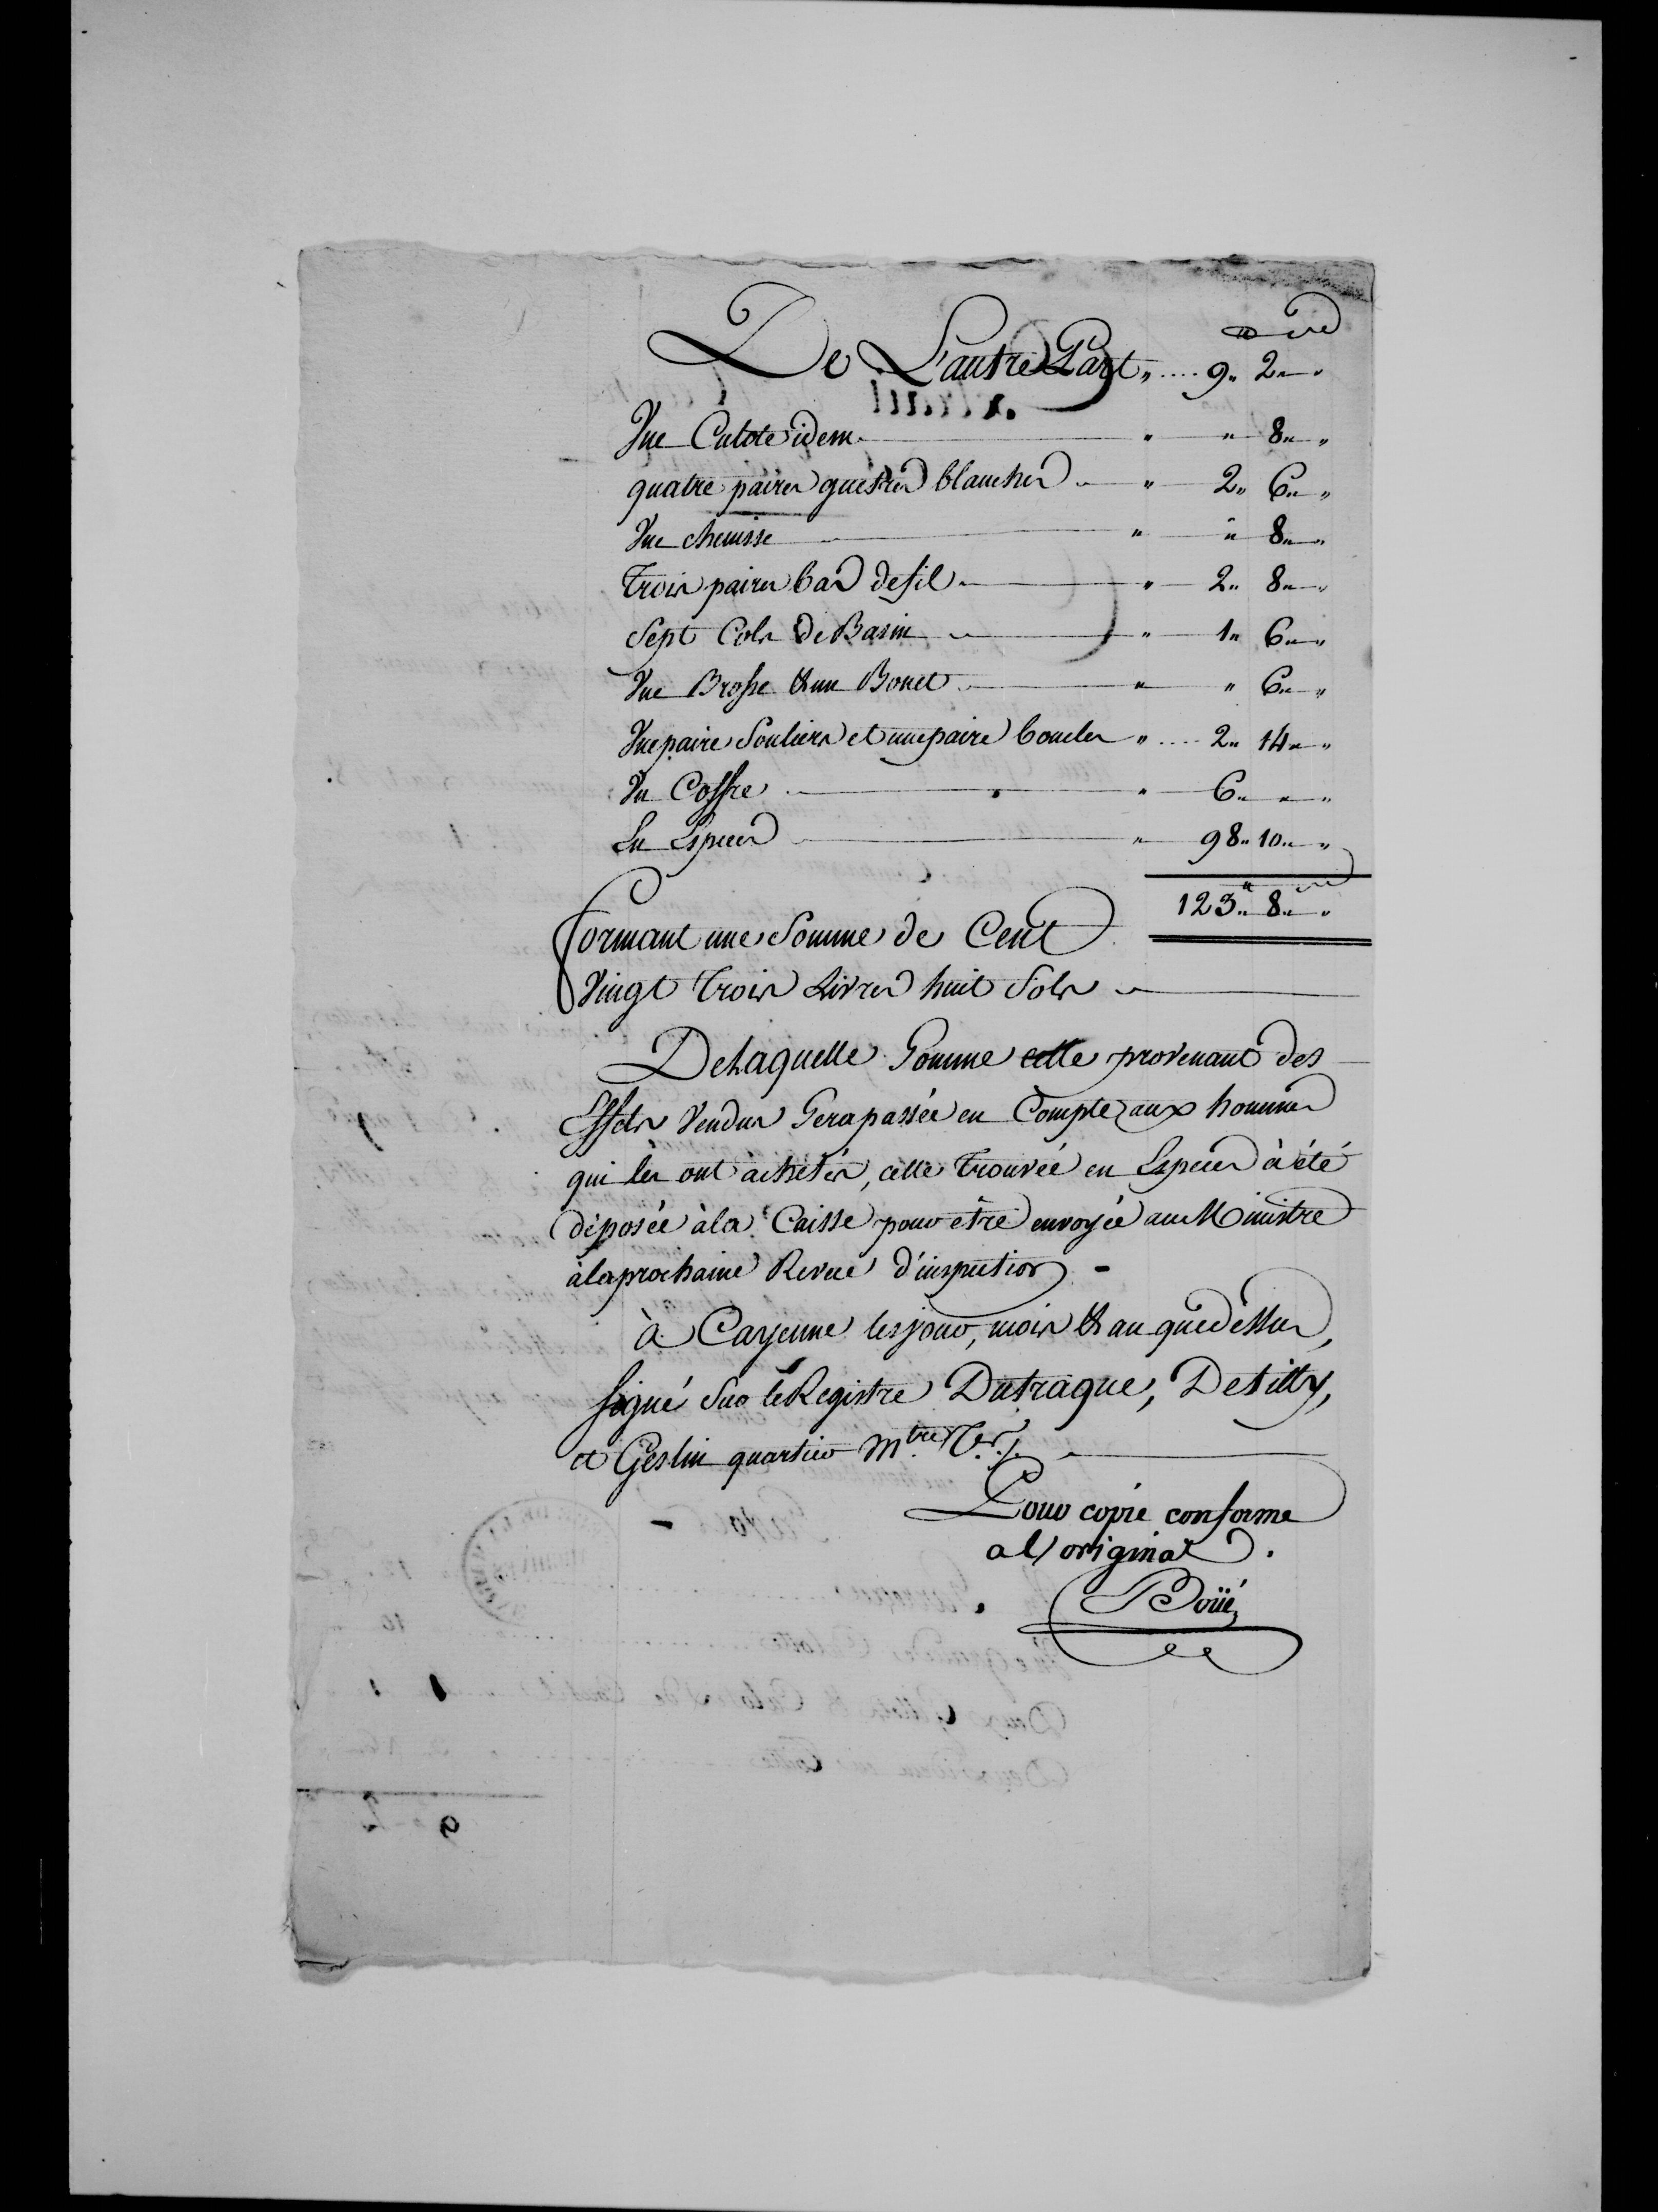 De L'autre Part „ .... 9„ 2„ „
Une Culote idem „ „ 8„ „
quatre paires guêtres blanches „ 2„ 6„ „
Une chemisse „ „ 8„ „
Trois paires bas de fil „ 2„ 8„ „
Sept Cols de Basin „ 1„ 6„ „
Une Brosse & un Bonet „ „ 6„ „
Une paire Souliers et une paire boucles „ .... 2„ 14„ „
Un Coffre „ 6„ „ „
En Especes „ 98„ 10„ „
123„ 8„ „
formant une Somme de Cent
Vingt Trois Livres huit Sols
De Laquelle Somme celle provenant des
Effets Vendus Sera passée en Compte aux hommes
qui les ont achetés, celle Trouvée en Especes à été
déposée à la Caisse pour être envoyée au Ministre
à la prochaine Revue d'inspection -
à Cayenne les jour, mois & an que dessus,
signé Sur le Registre Dutraque, Detilly,
et Geslin quartier Mtre Ter /.
Pour copie conforme
a l'original.
Boüé